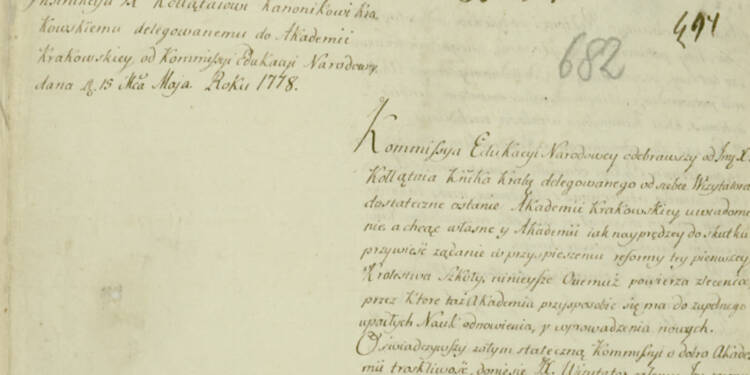 Instrukcyia X Kołłątaiowi Kanonikowi Kra
kowskiemu delegowanemu do Akademii
Krakowskiey, od Kommissyi Edukacyi Narodowey
dana D. 15 Mca Maja. Roku 1778.
682
Kommissya Edukacyi Narodowey odebrawszy od Jmę X.
Kołłątaia Knika Krakg delegowanego od siebie Wizytatora
dostateczne o stanie Akademii Krakowskiey uwiadomie
nie, a chcąc własne y Akademii iak nayprędzey do skutku
przywieść żądanie w przyspieszeniu reformy tey pierwszey
Krolestwa Szkoły, ninieysze Onemuż powierza zlecenia,
przez ktore taż Akademia przysposobić się ma do zupełnego
upadłych Nauk odnowienia, y wprowadzenia nowych.
Oświadczywszy zatym stateczną Kommissyi o dobro Akade
mii troskliwość, doniesie JX. Wizytator